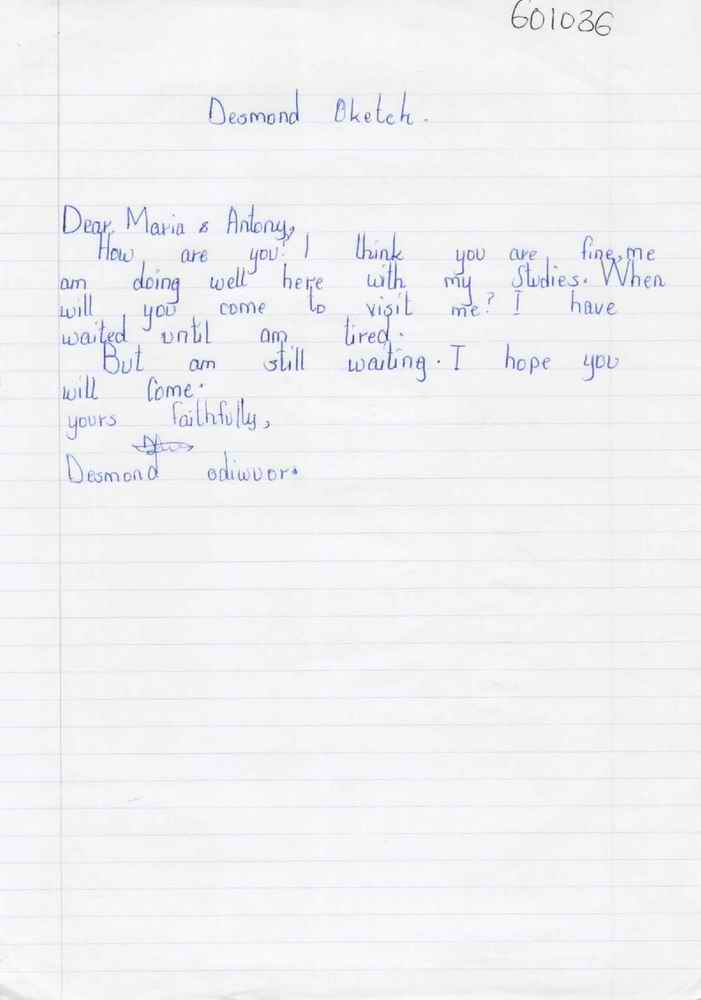 601036
Desmond Oketch.
Dear Maria & Antony,
How are you? I think you are fine, me
am doing well here with my studies. When
will you come to visit me? I have
waited until am tired.
But am still waiting. I hope you
will come.
yours faithfully,
Desmond odiwuor.